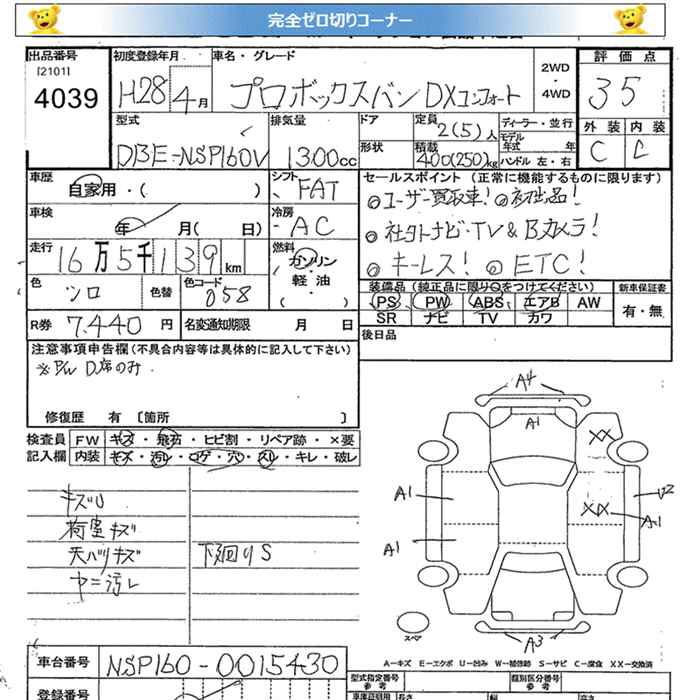 完全ゼロ切りコーナー
出品番号
[2101]
4039
初度登録年月
H28 4月
車名・グレード
プロボックスバン DXコンフォート
2WD
・
4WD
評価点
35
外装 内装
C C
型式
DBE-NSP160V
排気量
1300cc
ドア
形状
定員
2(5)人
積載
400(250)kg
ディーラー・並行
モデル
年式 年
ハンドル 左・右
車歴
自家用・( )
シフト
FAT
車検
年 月( 日)
冷房
AC
走行
16万5千139km
燃料
ガソリン
・
軽油
( )
色
シロ
色替
色コード
058
R券 7,440円
名変通知期限 月 日
セールスポイント (正常に機能するものに限ります)
◎ユーザー買取車! ◎初出品!
◎社外ナビ・TV & Bカメラ!
◎キーレス! ◎ETC!
装備品 (純正品に限り○をつけてください)
PS PW ABS エアB AW
SR ナビ TV カワ
新車保証書
有・無
後日品
注意事項申告欄 (不具合内容等は具体的に記入して下さい)
※P/W D席のみ
修復歴 有 〔箇所 〕
検査員
記入欄
FW キズ・飛石・ヒビ割・リペア跡・×要
内装 キズ・汚レ・コゲ・穴・スレ・キレ・破レ
キズU
荷室キズ
天バリキズ
ヤニ汚レ
下廻りS
A4
A1
XX
A1
U2
XX
A1
A1
スペア
A3
A…キズ E…エクボ U…凹み W…補修跡 S…サビ C…腐食 XX…交換済
車台番号
NSP160-0015430
登録番号
型式指定番号
参考
類別区分番号
参考
長さ
幅
高さ